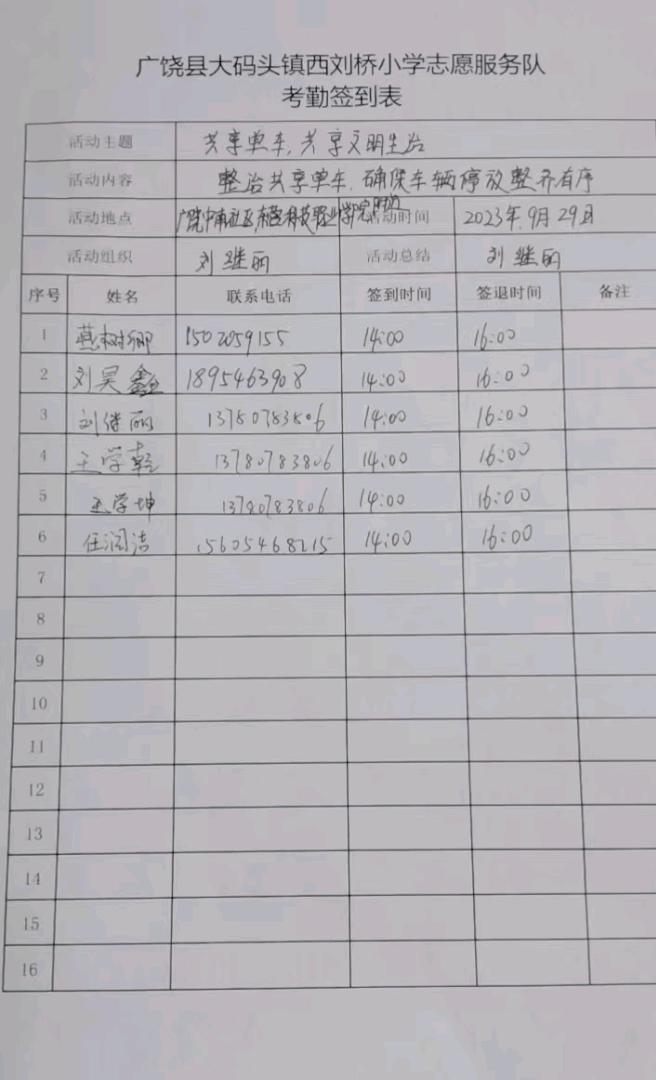 广饶县大码头镇西刘桥小学志愿服务队
考勤签到表
活动主题 共享单车,共享文明生活
活动内容 整治共享单车,确保车辆停放整齐有序
活动地点 活动时间 2023年9月29日
活动组织 刘继丽 活动总结 刘继丽
序号 姓名 联系电话 签到时间 签退时间 备注
1 1502059155 14:00 16:00
2 刘昊鑫 1895463908 14:00 16:00
3 刘继丽 13780783806 14:00 16:00
4 王学乾 13780783806 14:00 16:00
5 王学坤 13780783806 14:00 16:00
6 任润洁 15605468215 14:00 16:00
7
8
9
10
11
12
13
14
15
16